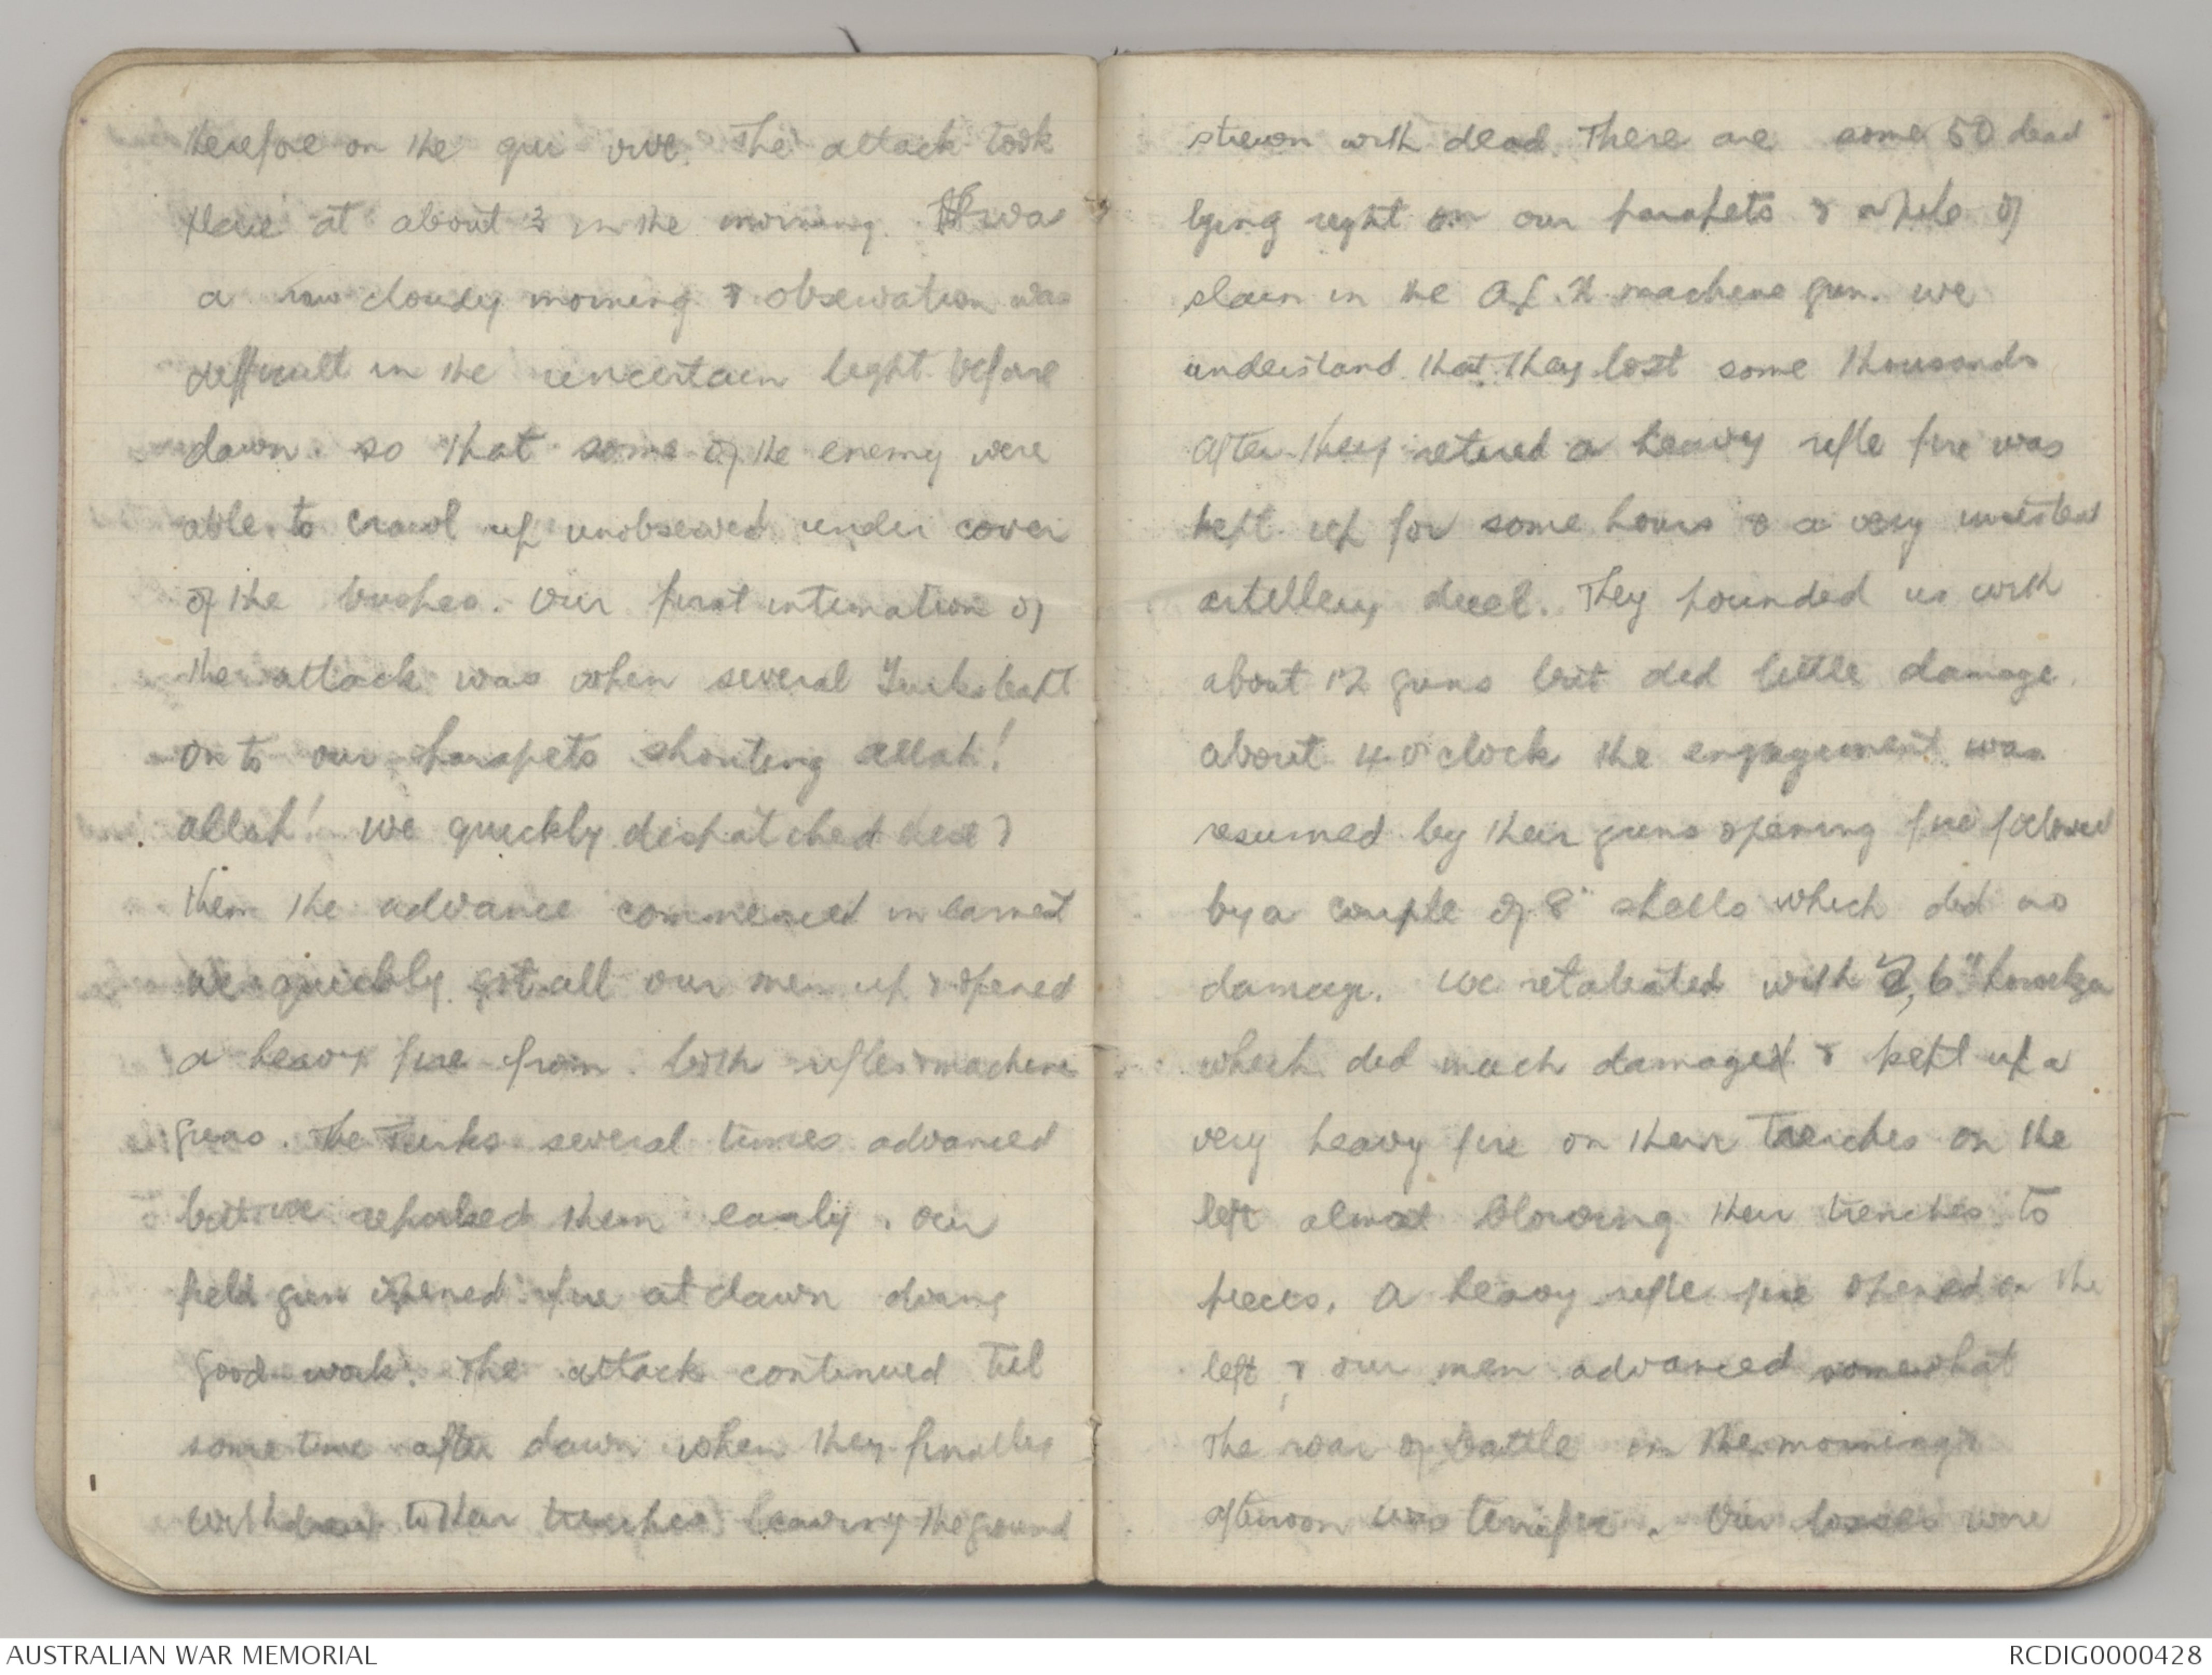 therefore on the qui vive. The attack took
place at about 3 in the morning. It was
a raw cloudy morning & observation was
difficult in the uncertain light before
dawn. so that some of the enemy were
able to crawl up unobserved under cover
of the bushes. Our first intimation of
the attack was when several Turks leapt
on to our parapets shouting allah!
allah! we quickly despatched these &
then the advance commenced in earnest
we quickly got all our men up & opened
a heavy fire from both rifles & machine
guns. The Turks several times advanced
but we repulsed them easily. our
field gun opened fire at dawn doing
good work. The attack continued till
some time after dawn when they finally
withdrew to their trenches leaving the ground
strewn with dead. There are some 50 dead
lying right on our parapets & a pile of
slain in the machine gun. we
understand that they lost some thousands
After they retired a heavy rifle fire was
kept up for some hours & a very
artillery duel. They pounded us with
about 12 guns but did little damage.
about 4 o'clock the engagement was
resumed by their guns opening fire followed
by a couple of 8" shells which did no
damage. We retaliated with 2, 6"
which did much damage & kept up a
very heavy fire on their trenches on the
left almost blowing their trenches to
pieces. A heavy rifle fire opened on the
left & our men advanced somewhat
The roar of battle in the morning &
afternoon was terrific. Our losses were
AUSTRALIAN WAR MEMORIAL
RCDIG0000428